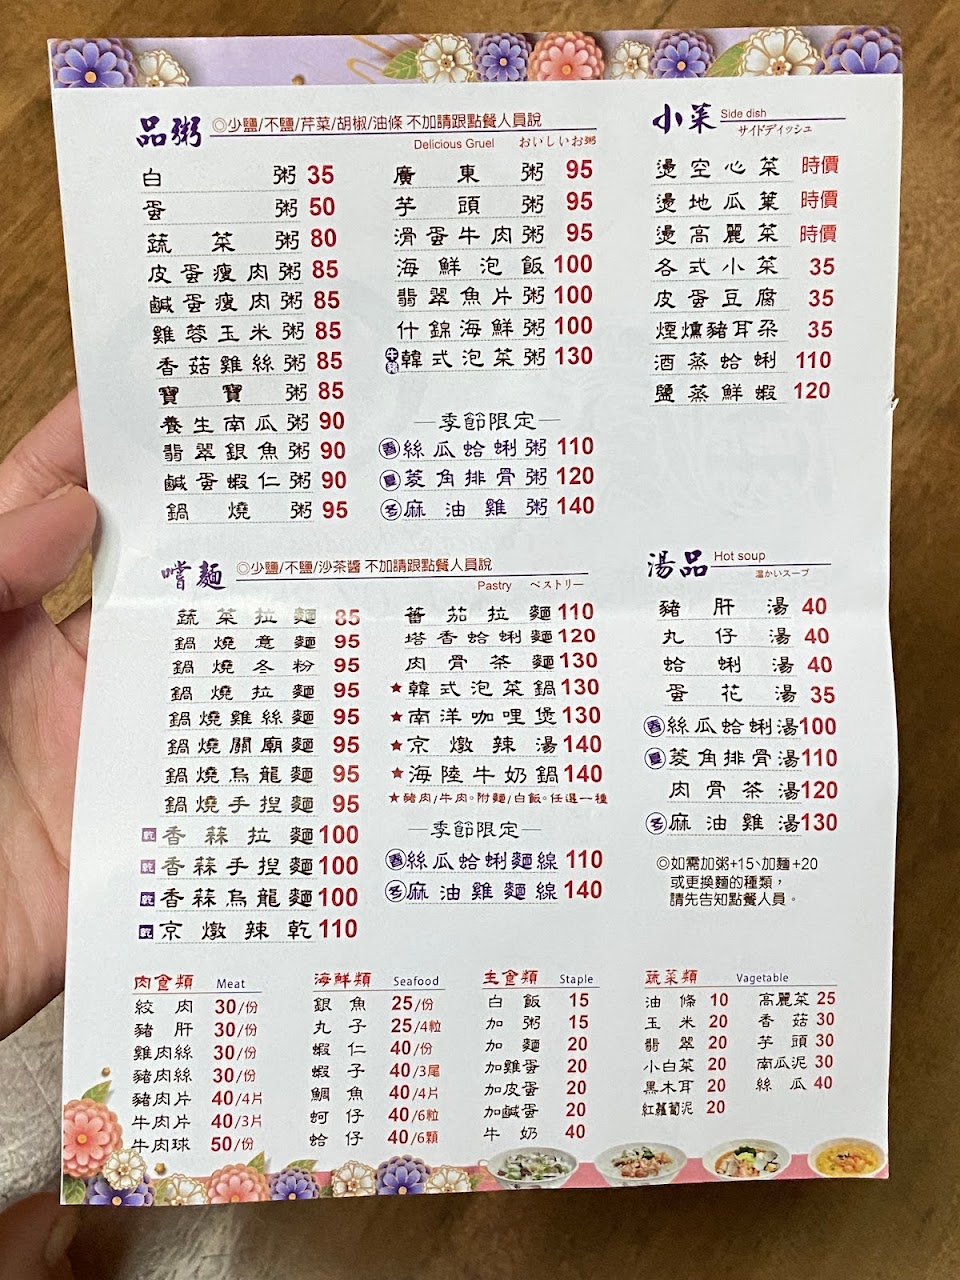 品粥 ◎少鹽/不鹽/芹菜/胡椒/油條 不加請跟點餐人員說
Delicious Gruel おいしいお粥
白粥 35
蛋粥 50
蔬菜粥 80
皮蛋瘦肉粥 85
鹹蛋瘦肉粥 85
雞蓉玉米粥 85
香菇雞絲粥 85
寶寶粥 85
養生南瓜粥 90
翡翠銀魚粥 90
鹹蛋蝦仁粥 90
鍋燒粥 95
廣東粥 95
芋頭粥 95
滑蛋牛肉粥 95
海鮮泡飯 100
翡翠魚片粥 100
什錦海鮮粥 100
牛豬 韓式泡菜粥 130
—季節限定—
春 絲瓜蛤蜊粥 110
夏 菱角排骨粥 120
冬 麻油雞粥 140
小菜 Side dish
サイドディッシュ
燙空心菜 時價
燙地瓜葉 時價
燙高麗菜 時價
各式小菜 35
皮蛋豆腐 35
煙燻豬耳朶 35
酒蒸蛤蜊 110
鹽蒸鮮蝦 120
嚐麵 ◎少鹽/不鹽/沙茶醬 不加請跟點餐人員說
Pastry ペストリー
蔬菜拉麵 85
鍋燒意麵 95
鍋燒冬粉 95
鍋燒拉麵 95
鍋燒雞絲麵 95
鍋燒關廟麵 95
鍋燒烏龍麵 95
鍋燒手捏麵 95
乾 香蒜拉麵 100
乾 香蒜手捏麵 100
乾 香蒜烏龍麵 100
乾 京燉辣乾 110
蕃茄拉麵 110
塔香蛤蜊麵 120
肉骨茶麵 130
★韓式泡菜鍋 130
★南洋咖哩煲 130
★京燉辣湯 140
★海陸牛奶鍋 140
★豬肉/牛肉。附麵/白飯。任選一種
—季節限定—
春 絲瓜蛤蜊麵線 110
冬 麻油雞麵線 140
湯品 Hot soup
温かいスープ
豬肝湯 40
丸仔湯 40
蛤蜊湯 40
蛋花湯 35
春 絲瓜蛤蜊湯 100
夏 菱角排骨湯 110
肉骨茶湯 120
冬 麻油雞湯 130
◎如需加粥+15、加麵+20
或更換麵的種類，
請先告知點餐人員。
肉食類 Meat
絞肉 30/份
豬肝 30/份
雞肉絲 30/份
豬肉絲 30/份
豬肉片 40/4片
牛肉片 40/3片
牛肉球 50/份
海鮮類 Seafood
銀魚 25/份
丸子 25/4粒
蝦仁 40/份
蝦子 40/3尾
鯛魚 40/4片
蚵仔 40/6粒
蛤仔 40/6顆
主食類 Staple
白飯 15
加粥 15
加麵 20
加雞蛋 20
加皮蛋 20
加鹹蛋 20
牛奶 40
蔬菜類 Vagetable
油條 10
玉米 20
翡翠 20
小白菜 20
黑木耳 20
紅蘿蔔泥 20
高麗菜 25
香菇 30
芋頭 30
南瓜泥 30
絲瓜 40